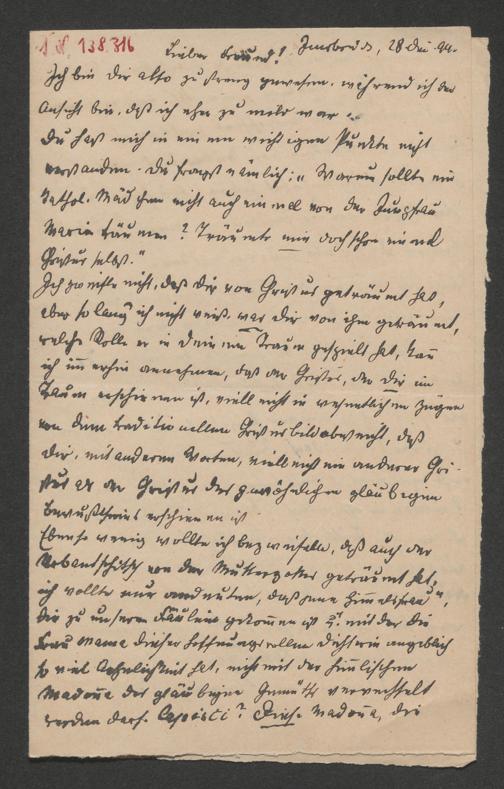 I.N. 138.316
Lieber Freund! Innsbruck, 28 Dez. 44.
Ich bin dir also zu streng gewesen, während ich der
Ansicht bin, daß ich eher zu mild war.
Du hast mich in einem wichtigen Punkte nicht
verstanden. Du fragst nämlich: „Warum sollte ein
kathol. Mädchen nicht auch einmal von der Jungfrau
Maria träumen? Träumte mir doch schon einmal
Christus selbst."
Ich zweifle nicht, daß dir von Christus geträumt hat,
aber solang ich nicht weiß, was dir von ihm geträumt,
welche Rolle er in deinem Traum gespielt hat, kann
ich immerhin annehmen, daß der Christus, der dir im
Traum erschienen ist, vielleicht in wesentlichen Zügen
von dem traditionellen Christusbild abweicht, daß
dir, mit anderen Worten, vielleicht ein anderer Chri-
stus als der Christus des gewöhnlichen gläubigen
Bewußtseins erschienen ist.
Ebenso wenig wollte ich bezweifeln, daß auch der
von der Muttergottes geträumt hat,
ich wollte nur andeuten, daß jene „Himmelsfrau",
die zu unserem Fräulein gekommen ist u. mit der die
Frau Mama dieser hoffnungsvollen Dichterin angeblich
so viel Ähnlichkeit hat, nicht mit der himmlischen
Madonna der gläubigen Gemüter verwechselt
werden darf. Capisci? Diese Madonna, die